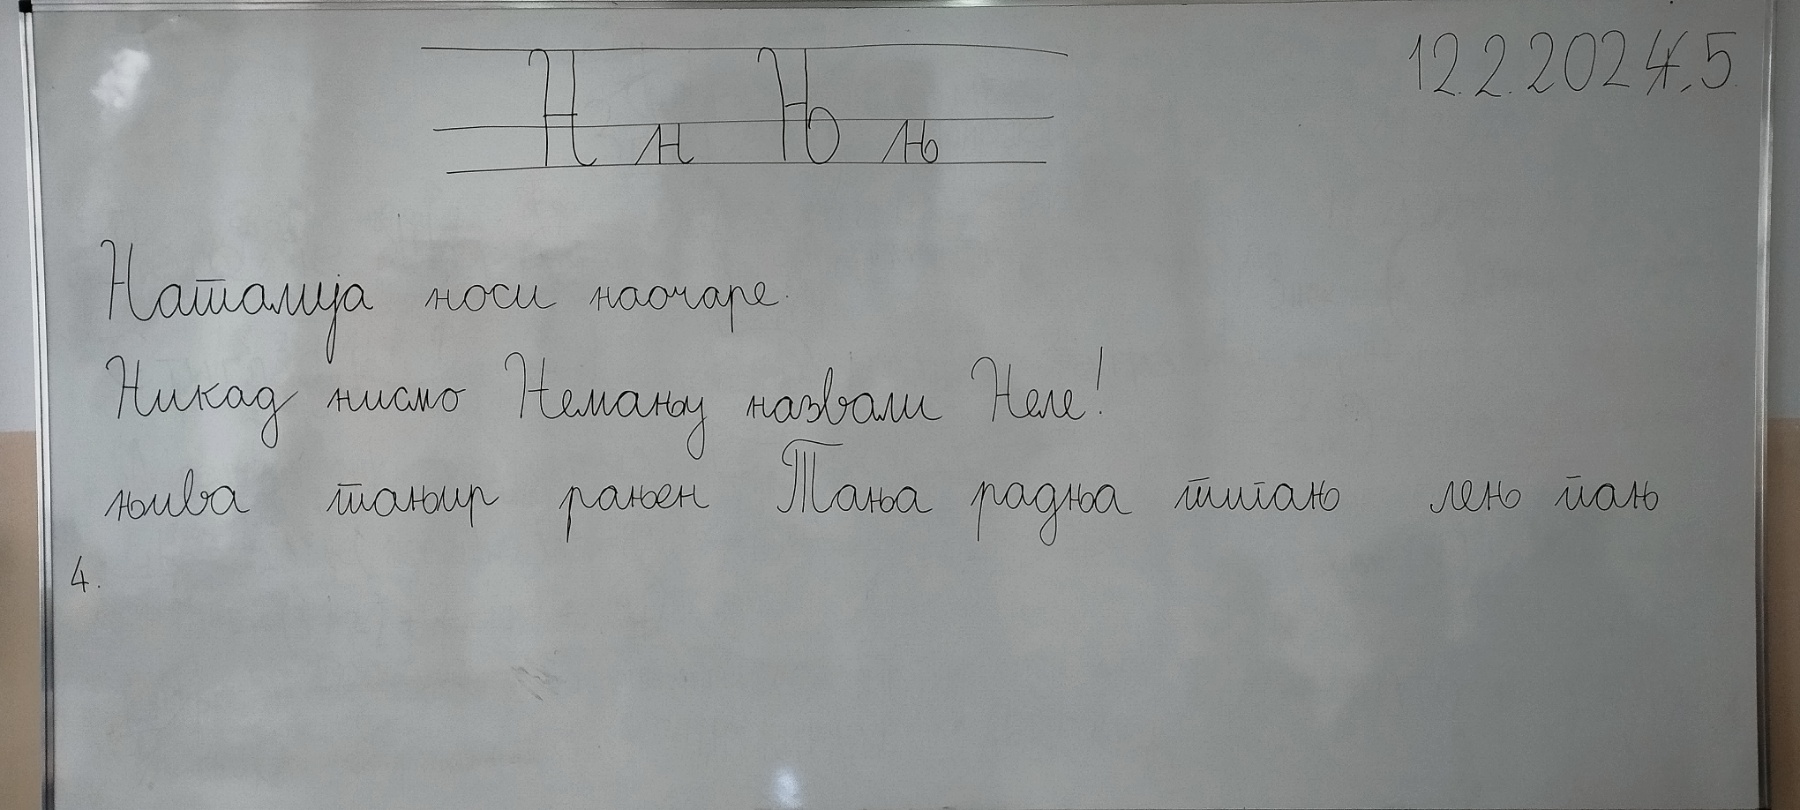 12.2.2025.
Н н Њ њ
Наталија носи наочаре.
Никад нисмо Немању назвали Неле!
њива тањир рањен Тања радња питањ лењ пањ
4.